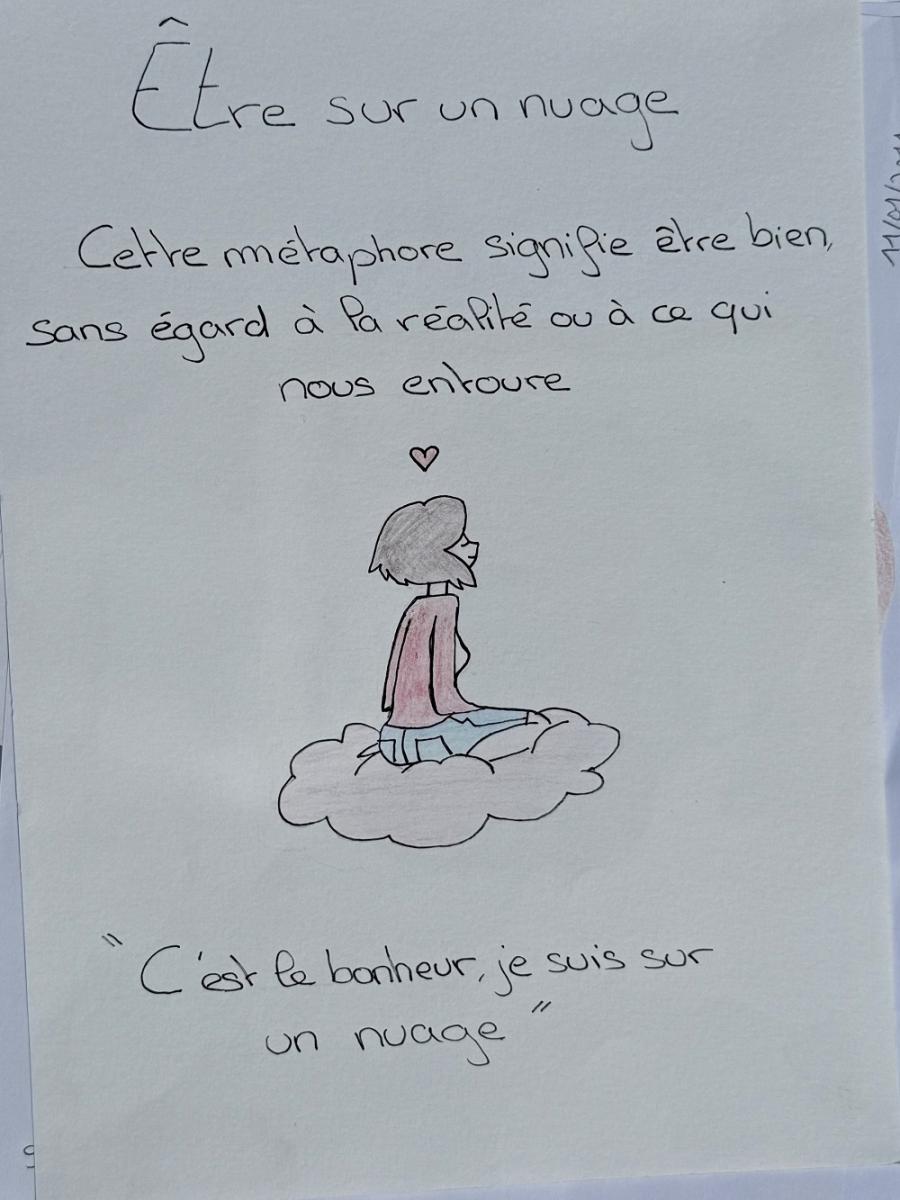 Être sur un nuage
Cette métaphore signifie être bien,
sans égard à la réalité ou à ce qui
nous entoure
"C'est le bonheur, je suis sur
un nuage"